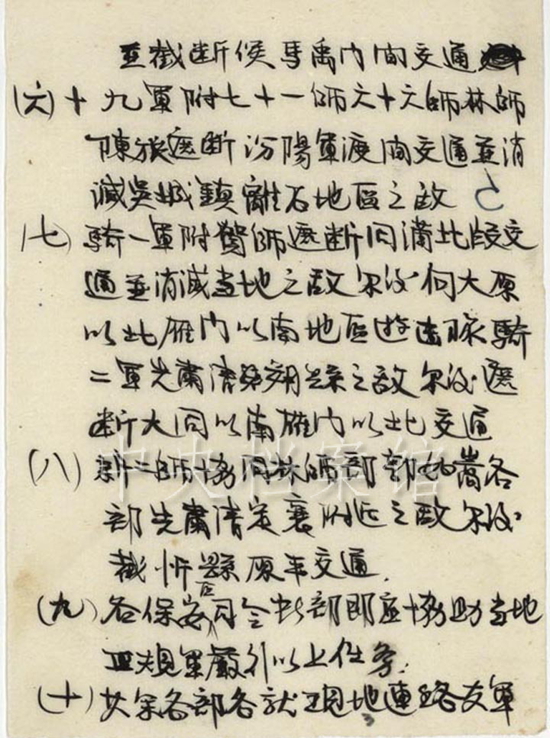 並截斷侯馬禹門間交通
(六)十九軍附七十一師六十六師林師
陳旅遮斷汾陽軍渡間交通並消
滅吳城鎮離石地區之敵
(七)騎一軍附師遮斷同蒲北段交
通並消滅當地之敵尔後向大原
以北雁门以南地區遊擊騎
二軍先肅清朔縣之敵尔後遮
斷大同以南雁门以北交通
(八)新二師協同林師部各
部先肅清定襄附近之敵尔後
截忻縣原平交通.
(九)各保安區司令部即应協助当地
正規軍嚴行以上任务.
(十)其余各部各就現地連絡友軍
中央档案馆